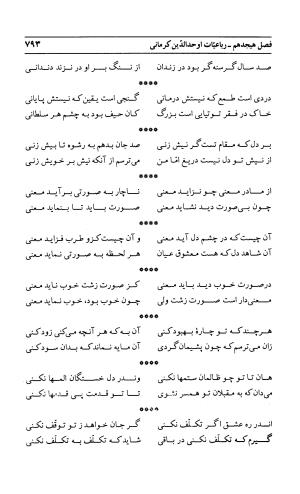 فصل هیجدهم ـ رباعیّات اوحدالدّین کرمانی ۷۹۳
صد سال گرسنه گر بود در زندان از ننگ بر او در نزند دندانی
****
دردی است طمع که نیستش درمانی گنجی است یقین که نیستش پایانی
خاک در فقر توتیایی است بزرگ کان حیف بود به چشم هر سلطانی
****
بر دل که مقام تست گر نیش زنی صد جان بدهم به رشوه تا بیش زنی
از نیش تو دل نیست دریغ امّا من می‌ترسم از آنکه نیش بر خویش زنی
****
از مادر معنی چو نزاید معنی ناچار به صورتی برآید معنی
چون بی‌صورت دید نشاید معنی صورت باید تا بنماید معنی
****
آن چیست که در چشم دل آید معنی و آن چیست کزو طرب فزاید معنی
آن شاهد دل که هست معشوق عیان هر لحظه به صورتی نماید معنی
****
درصورت خوب دید باید معنی کز صورت زشت خوب ناید معنی
معنی‌دار است صورت زشت ولی چون خوب بود، خوب نماید معنی
****
هرچندکه تو چارهٔ بهبودکنی آن به که هر آنچه می‌کنی زودکنی
زان می‌ترسم که چون پشیمان‌گردی آن مایه نماندکه بدان سودکنی
****
هان تا تو چو ظالمان ستمها نکنی وندر دل خستگان المها نکنی
می‌دان که به مقبلان تو همسر نشوی تا تو قدمت پی قدمها نکنی
****
اندر ره عشق اگر تکلّف نکنی گر جان خواهد ز تو توقّف نکنی
گیرم که تکلّف نکنی در باقی شاید که به تکلّف به تکلّف نکنی